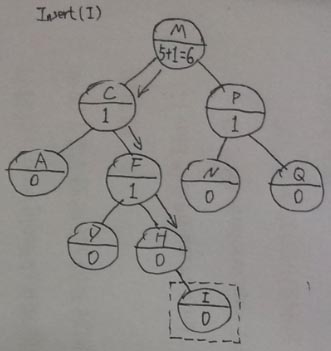 Insert(I)
M
5+1=6
C
1
P
1
A
0
F
1
N
0
Q
0
D
0
H
0
I
0